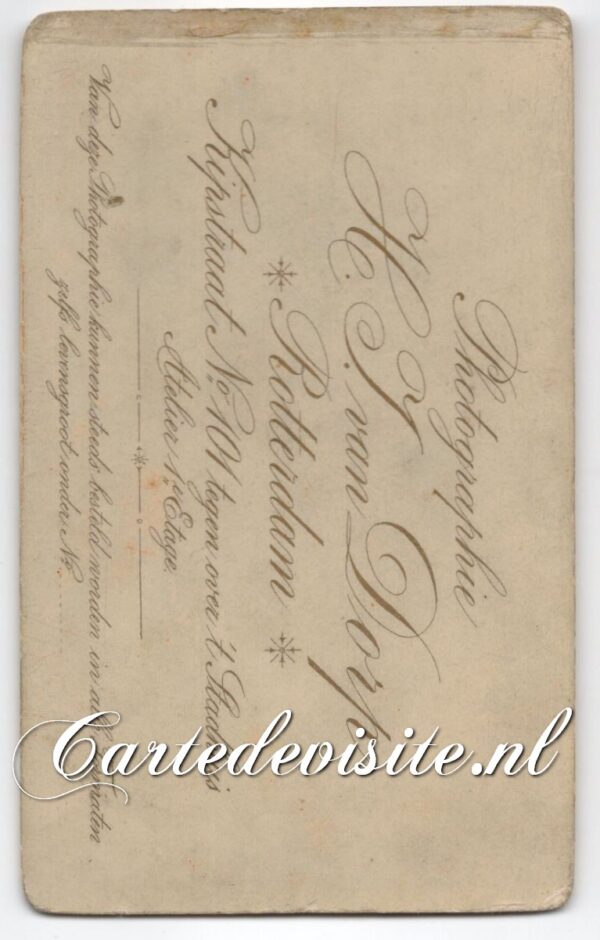 Photographie
H. J. van Dorp
* Rotterdam *
Kipstraat No. 101 tegen over 't Stadhuis
Atelier 1e Etage.
Van deze Photographie kunnen steeds besteld worden in alle formaten
zelfs levensgroot onder No.
Cartedevisite.nl